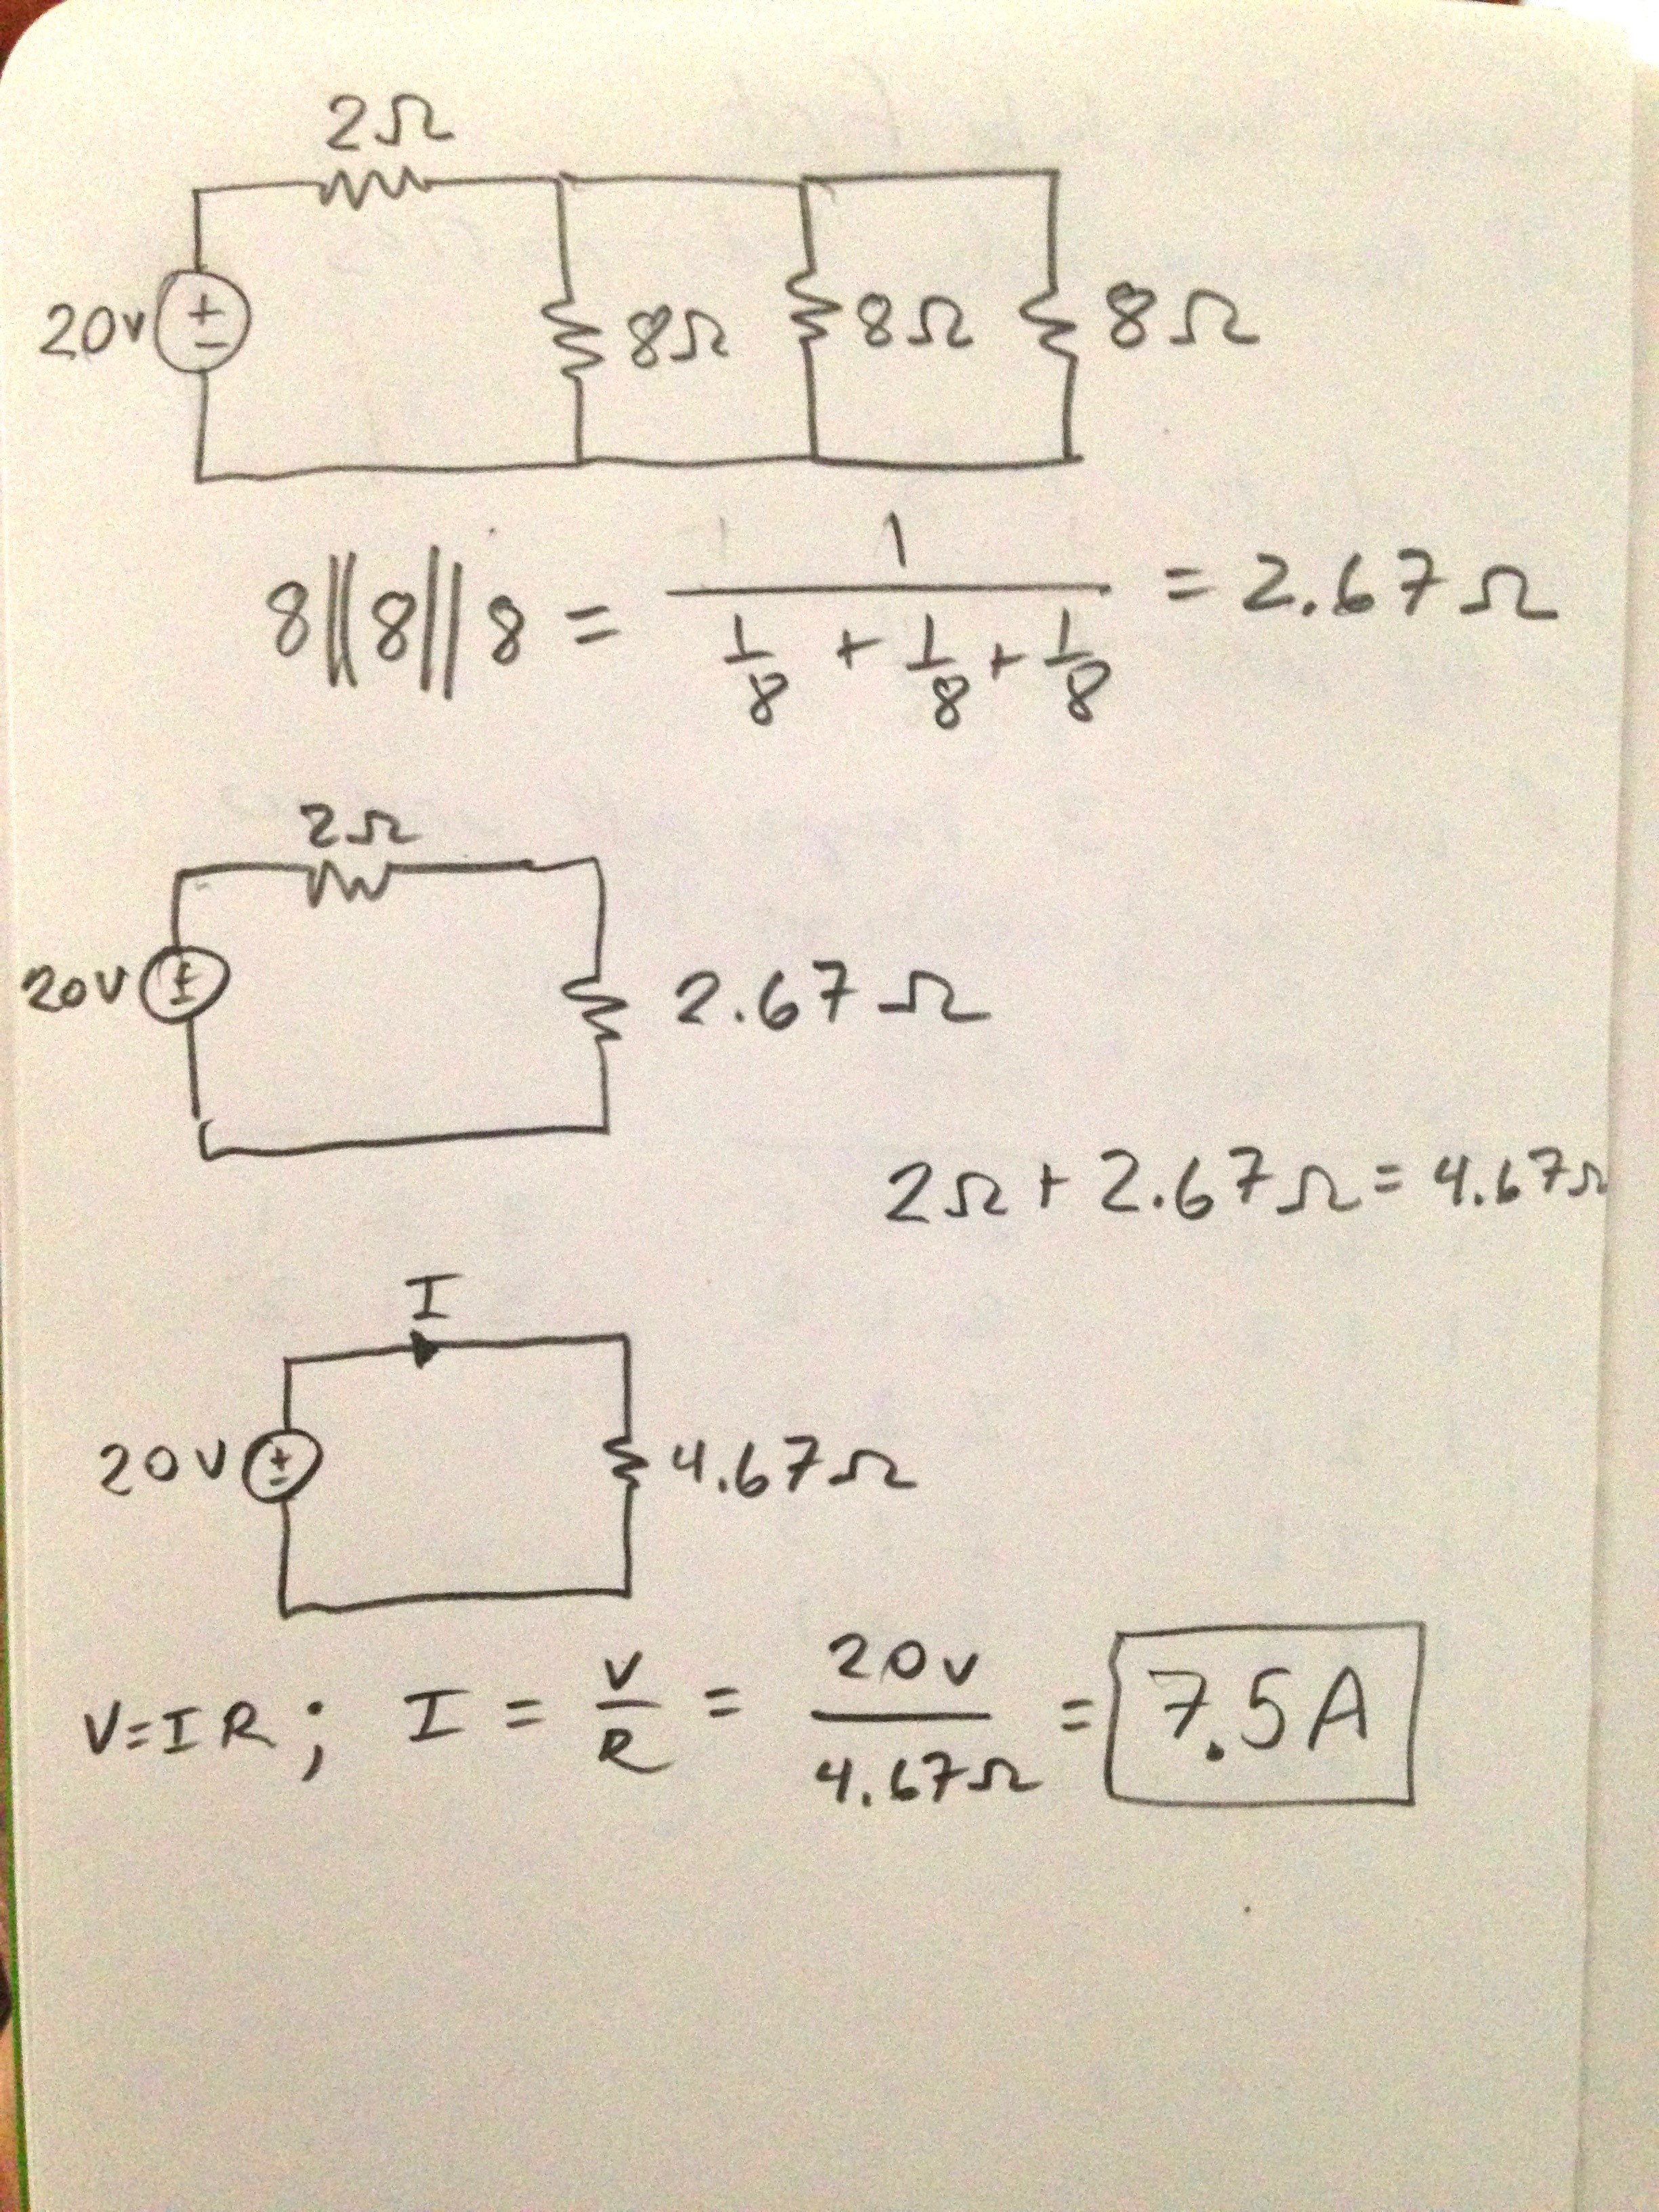 2Ω
20v + − 8Ω 8Ω 8Ω
8||8||8 = 1 / (1/8 + 1/8 + 1/8) = 2.67Ω
2Ω
20V ± 2.67Ω
2Ω + 2.67Ω = 4.67Ω
I
20V ± 4.67Ω
V=IR; I = V/R = 20v/4.67Ω = 7.5A